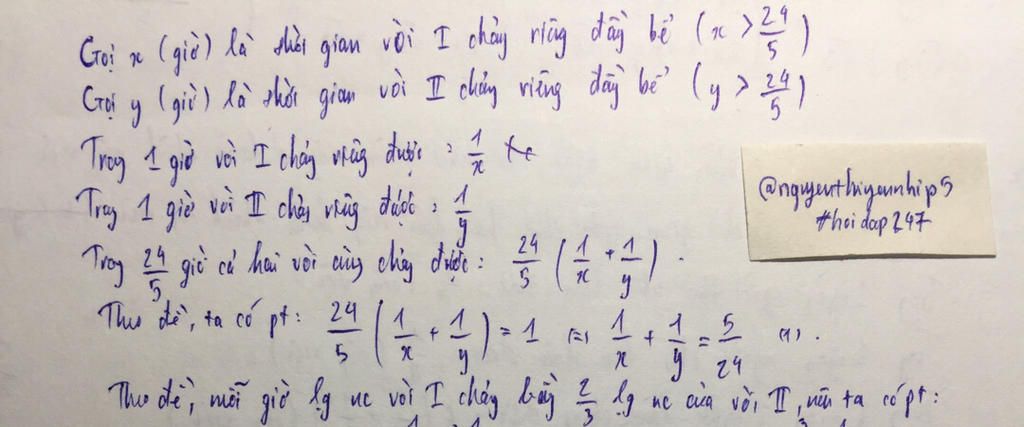 Gọi x (giờ) là thời gian vòi I chảy riêng đầy bể (x > 24/5)
Gọi y (giờ) là thời gian vòi II chảy riêng đầy bể (y > 24/5)
Trong 1 giờ vòi I chảy riêng được : 1/x
Trong 1 giờ vòi II chảy riêng được : 1/y
Trong 24/5 giờ cả hai vòi cùng chảy được : 24/5 (1/x + 1/y) .
Theo đề, ta có pt : 24/5 (1/x + 1/y) = 1 (=) 1/x + 1/y = 5/24 (1) .
Theo đề, mỗi giờ lg nc vòi I chảy bằng 2/3 lg nc của vòi II, nên ta có pt :
@nguyenthiyennhip5
#hoidap247